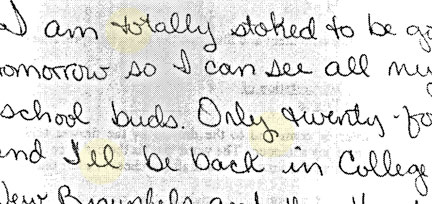 I am totally stoked to be go
omorrow so I can see all my
school buds. Only twenty-fo
nd I'll be back in College
New Braunfels and the